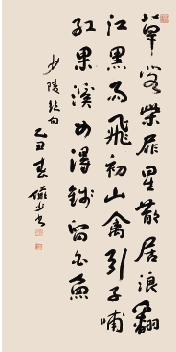 草閣柴扉星散居浪翻
江黑雨飛初山禽引子哺
紅果溪女得錢留白魚
少陵句 乙丑春